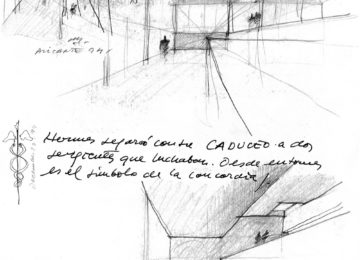 ALICANTE 94
Hermes separó con su CADUCEO a dos
serpientes que luchaban. Desde entonces
es el símbolo de la concordia.